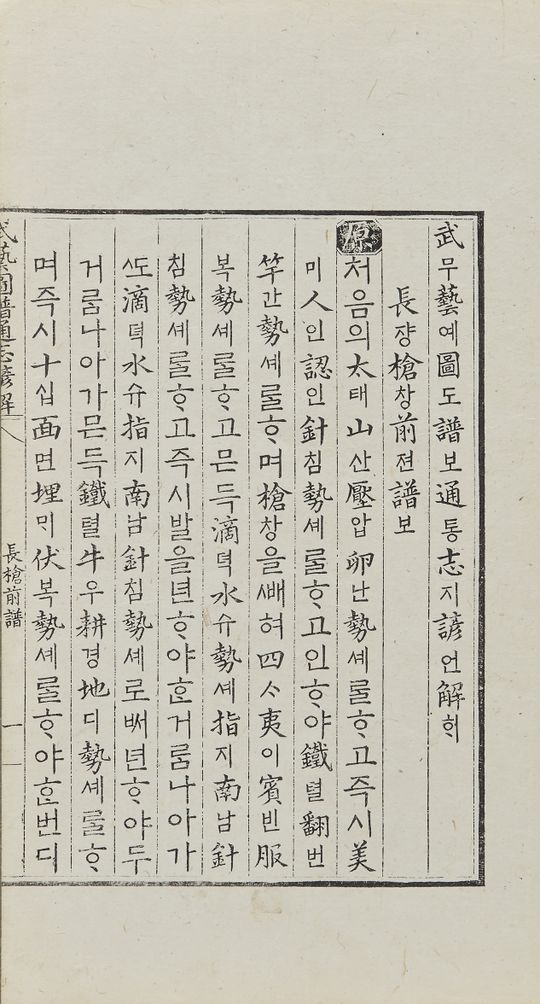 武무藝예圖도譜보通통志지諺언解ᄒᆡ
長쟝槍창前젼譜보
原처음의太태山산壓압卵난勢셰ᄅᆞᆯᄒᆞ고즉시美
미人인認인針침勢셰ᄅᆞᆯᄒᆞ고인ᄒᆞ야鐵텰翻번
竿간勢셰ᄅᆞᆯᄒᆞ며槍창을ᄲᅢ혀四ᄉᆞ夷이賓빈服
복勢셰ᄅᆞᆯᄒᆞ고믄득滴뎍水슈勢셰指지南남針
침勢셰ᄅᆞᆯᄒᆞ고즉시발을년ᄒᆞ야ᄒᆞᆫ거룸나아가
ᄯᅩ滴뎍水슈指지南남針침勢셰로ᄡᅥ년ᄒᆞ야두
거룸나아가믄득鐵텰牛우耕경地디勢셰ᄅᆞᆯᄒᆞ
며즉시十십面면埋ᄆᆡ伏복勢셰ᄅᆞᆯᄒᆞ야ᄒᆞᆫ번디
武藝圖譜通志諺解
長槍前譜
一